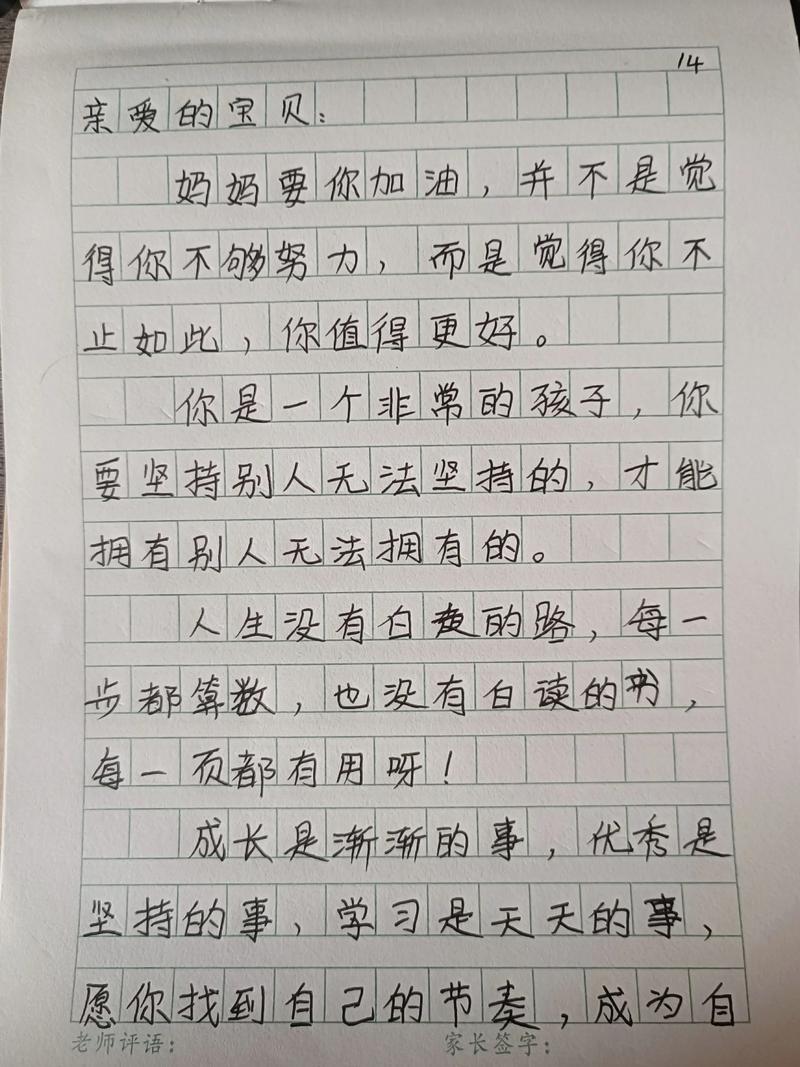 14
亲爱的宝贝：
妈妈要你加油，并不是觉
得你不够努力，而是觉得你不
止如此，你值得更好。
你是一个非常的孩子，你
要坚持别人无法坚持的，才能
拥有别人无法拥有的。
人生没有白走的路，每一
步都算数，也没有白读的书，
每一页都有用呀！
成长是渐渐的事，优秀是
坚持的事，学习是天天的事，
愿你找到自己的节奏，成为自
老师评语： 家长签字：